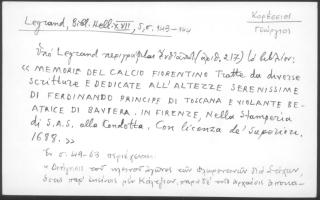 Legrand, Bibl. Hell. XVII, 5, σ. 143-144
Κορέσσιος
Γεώργιος
Ὑπὸ Legrand περιγράφεται (ἀριθ. 217) τὸ βιβλίον:
« MEMORIE DEL CALCIO FIORENTINO Tratte da diverse
scritture E DEDICATE ALL'ALTEZZE SERENISSIME
DI FERDINANDO PRINCIPE DI TOSCANA E VIOLANTE BE-
ATRICE DI BAVIERA. IN FIRENZE, Nella Stamperia
di S.A.S. alla Condotta. Con licenza de' Superiori.
1688. »
Ἐν σ. 49-63 περιέχεται:
« Διήγησις τοῦ ἀγῶνος τῶν Φλωρεντινῶν
παρ' ἐκείνοις μὲν Κάλτζιον, παρὰ δὲ τοῖς ἀρχαίοις